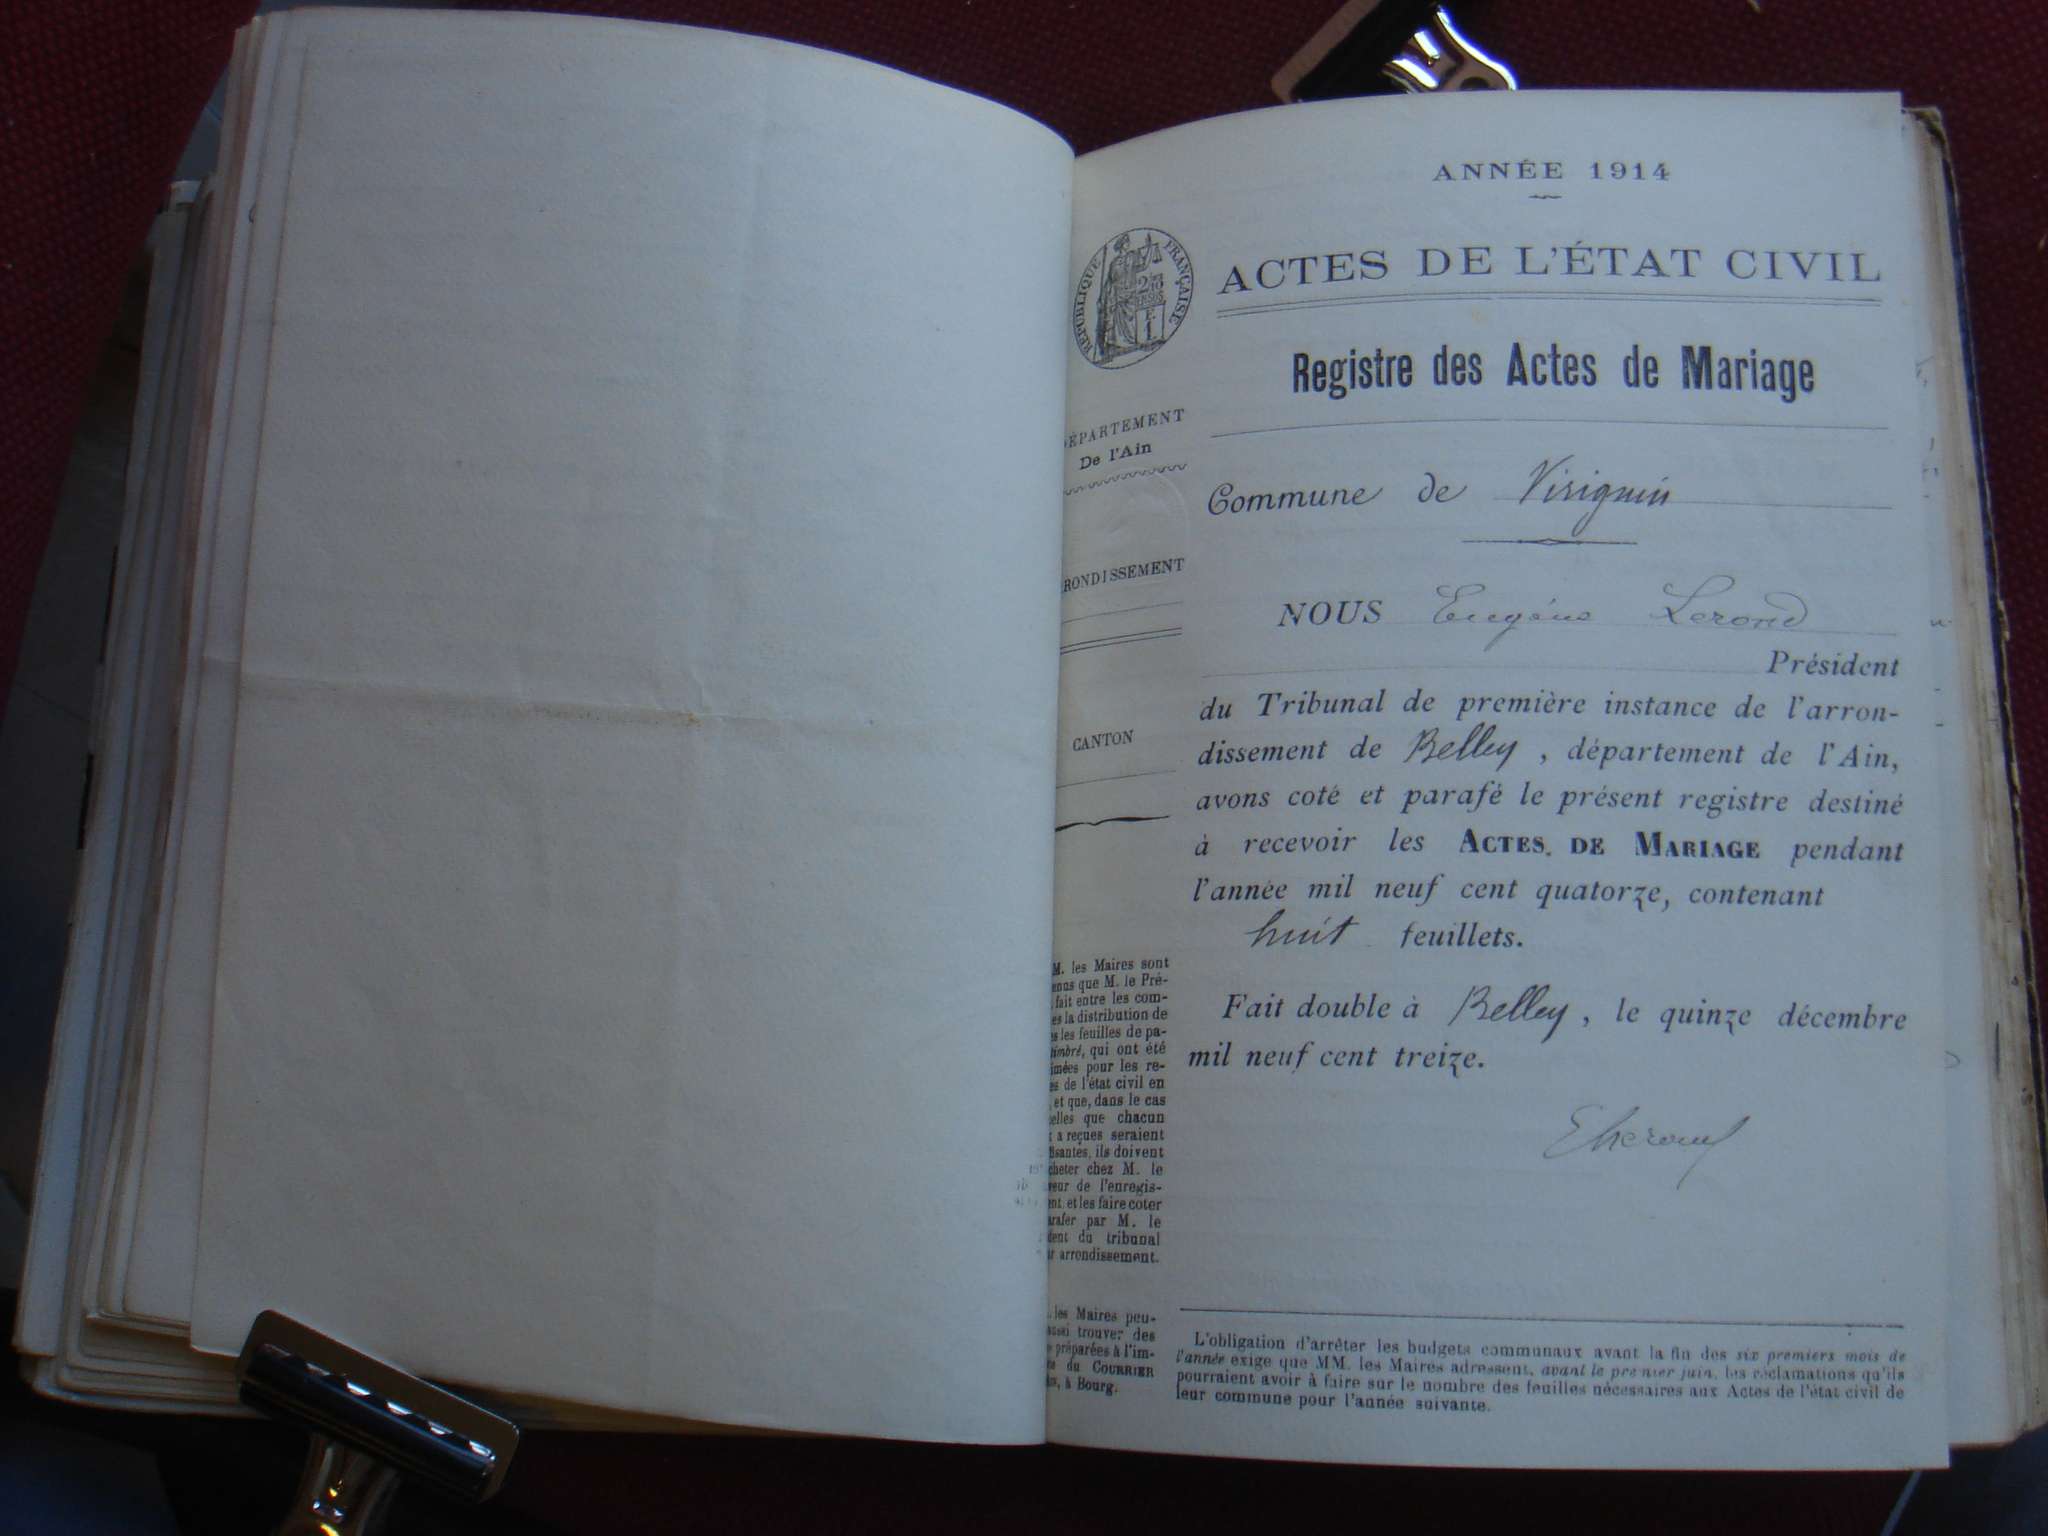 ANNÉE 1914
RÉPUBLIQUE FRANÇAISE
ACTES DE L'ÉTAT CIVIL
Registre des Actes de Mariage
DÉPARTEMENT
De l'Ain
Commune de Virignin
RONDISSEMENT
NOUS Eugène Lerond
Président
du Tribunal de première instance de l'arron-
dissement de Belley, département de l'Ain,
CANTON
avons coté et parafé le présent registre destiné
à recevoir les ACTES DE MARIAGE pendant
l'année mil neuf cent quatorze, contenant
huit feuillets.
Fait double à Belley, le quinze décembre
mil neuf cent treize.
M. les Maires sont
enus que M. le Pré-
fait entre les com-
es la distribution de
es les feuilles de pa-
timbré, qui ont été
imées pour les re-
es de l'état civil en
, et que, dans le cas
elles que chacun
a reçues seraient
fisantes, ils doivent
cheter chez M. le
veur de l'enregis-
ent, et les faire coter
arafer par M. le
dent du tribunal
r arrondissement.
les Maires peu-
ussi trouver des
préparées à l'im-
du COURRIER
, à Bourg.
L'obligation d'arrêter les budgets communaux avant la fin des six premiers mois de
l'année exige que MM. les Maires adressent, avant le premier juin, les réclamations qu'ils
pourraient avoir à faire sur le nombre des feuilles nécessaires aux Actes de l'état civil de
leur commune pour l'année suivante.